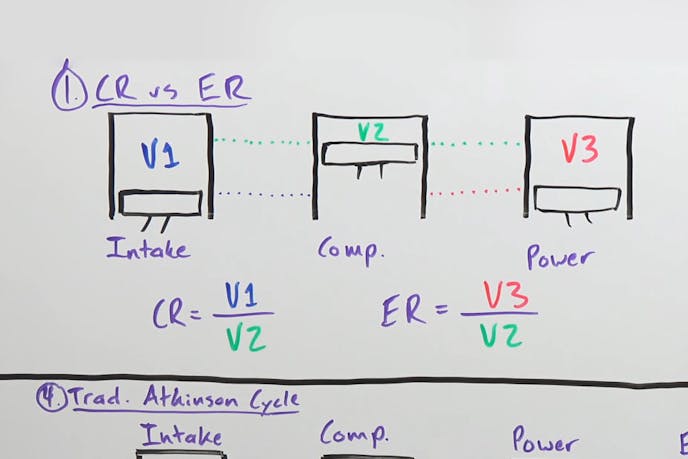 1. CR vs ER
V1 V2 V3
Intake Comp. Power
CR = V1/V2 ER = V3/V2
4. Trad. Atkinson Cycle
Intake Comp. Power E